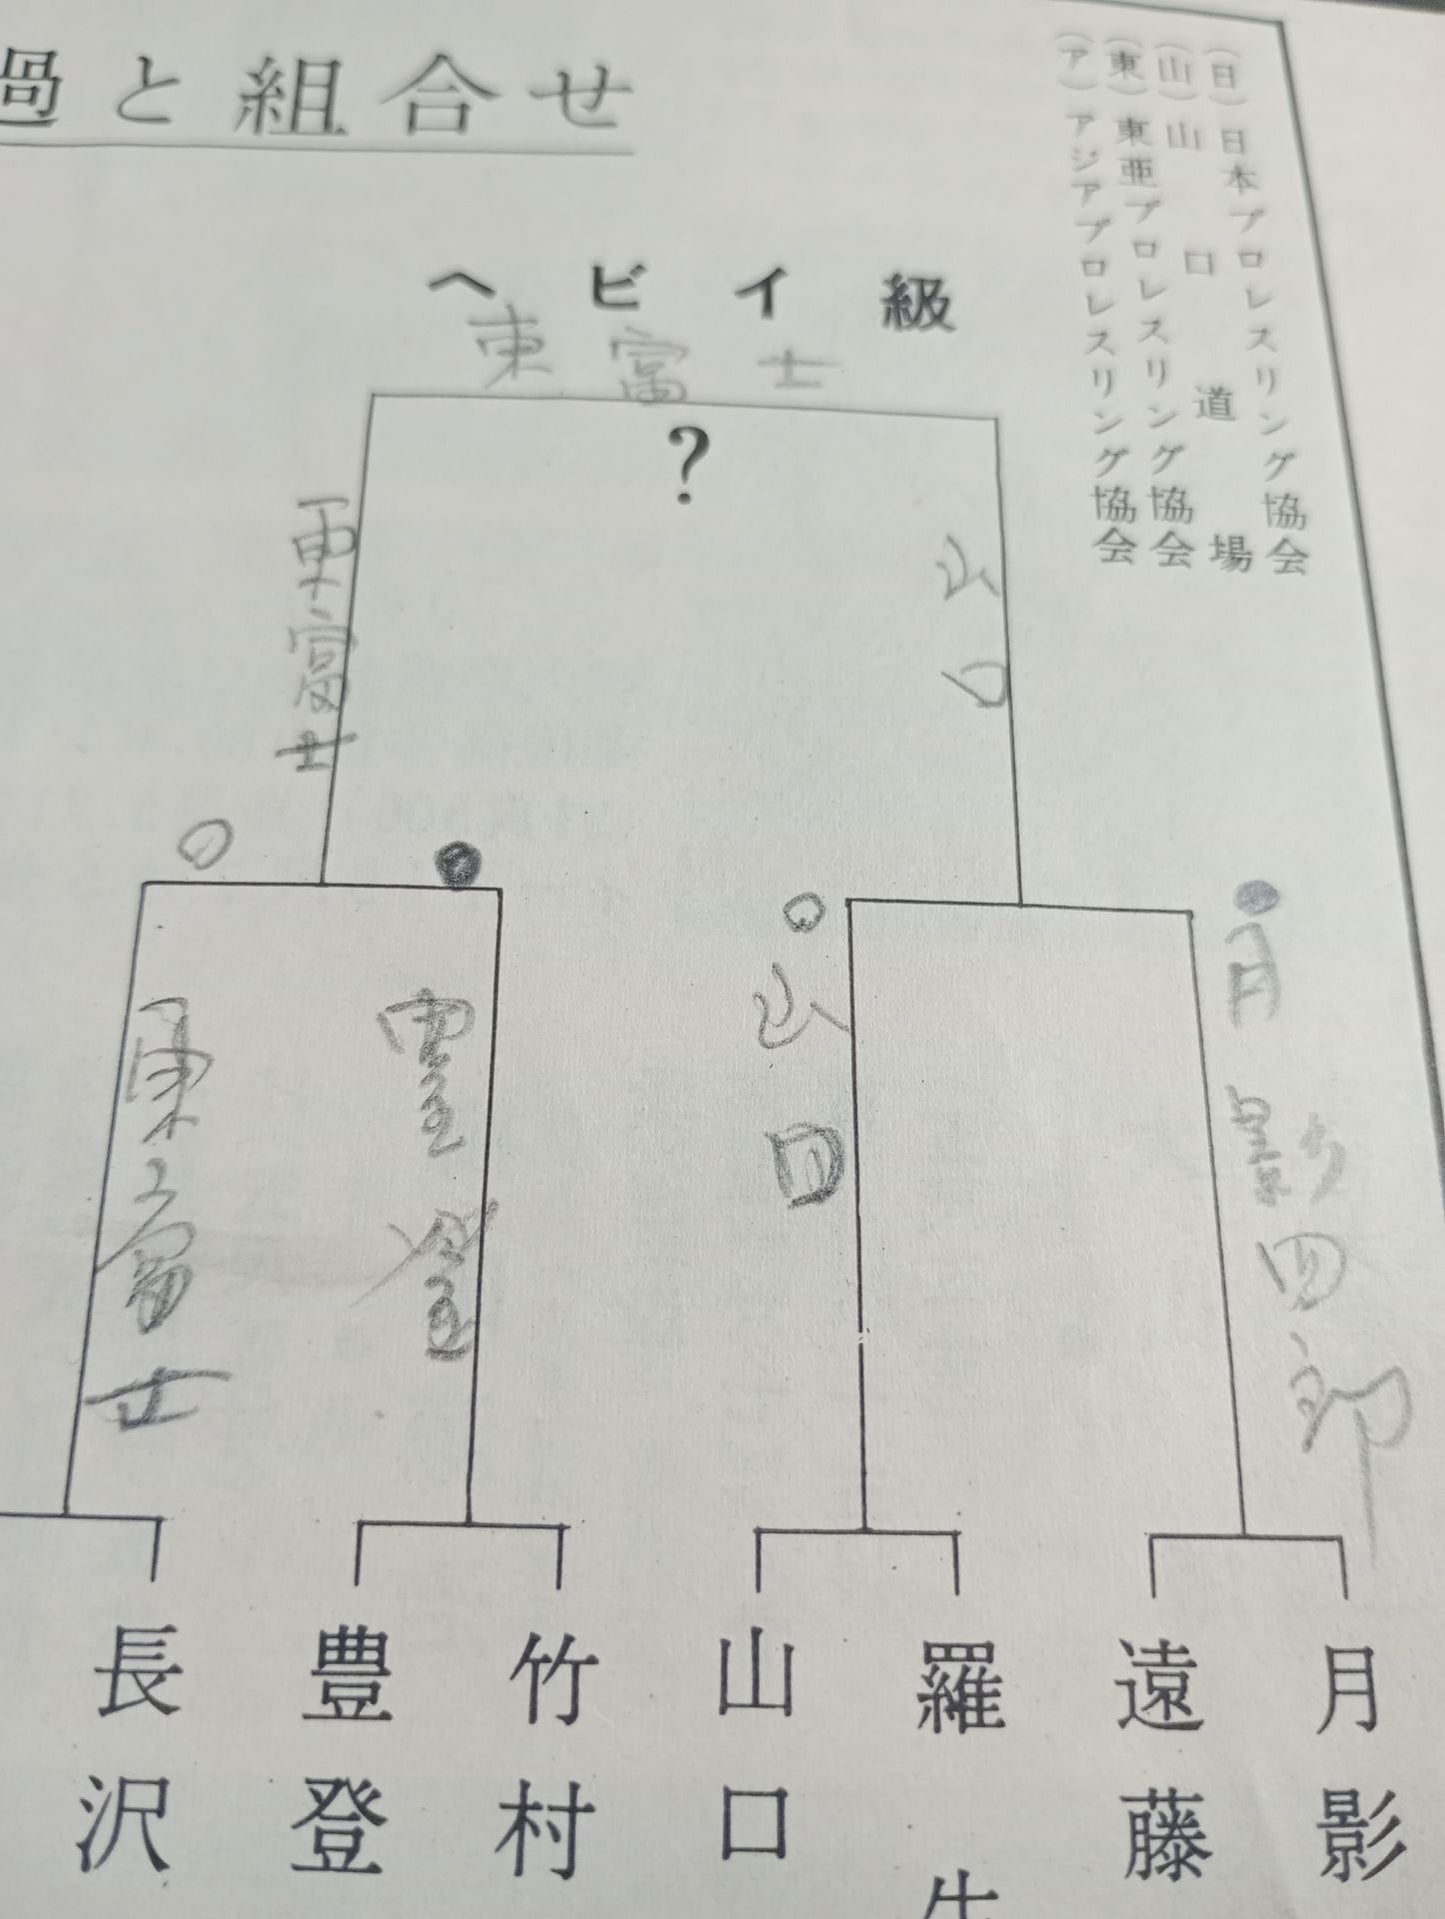 過と組合せ
(日)日本プロレスリング協会
(山)山口道場
(東)東亜プロレスリング協会
(ア)アジアプロレスリング協会
ヘビイ級
東富士
?
東富士
山口
東富士
豊登
山口
月影四郎
長沢
豊登
竹村
山口
羅生
遠藤
月影